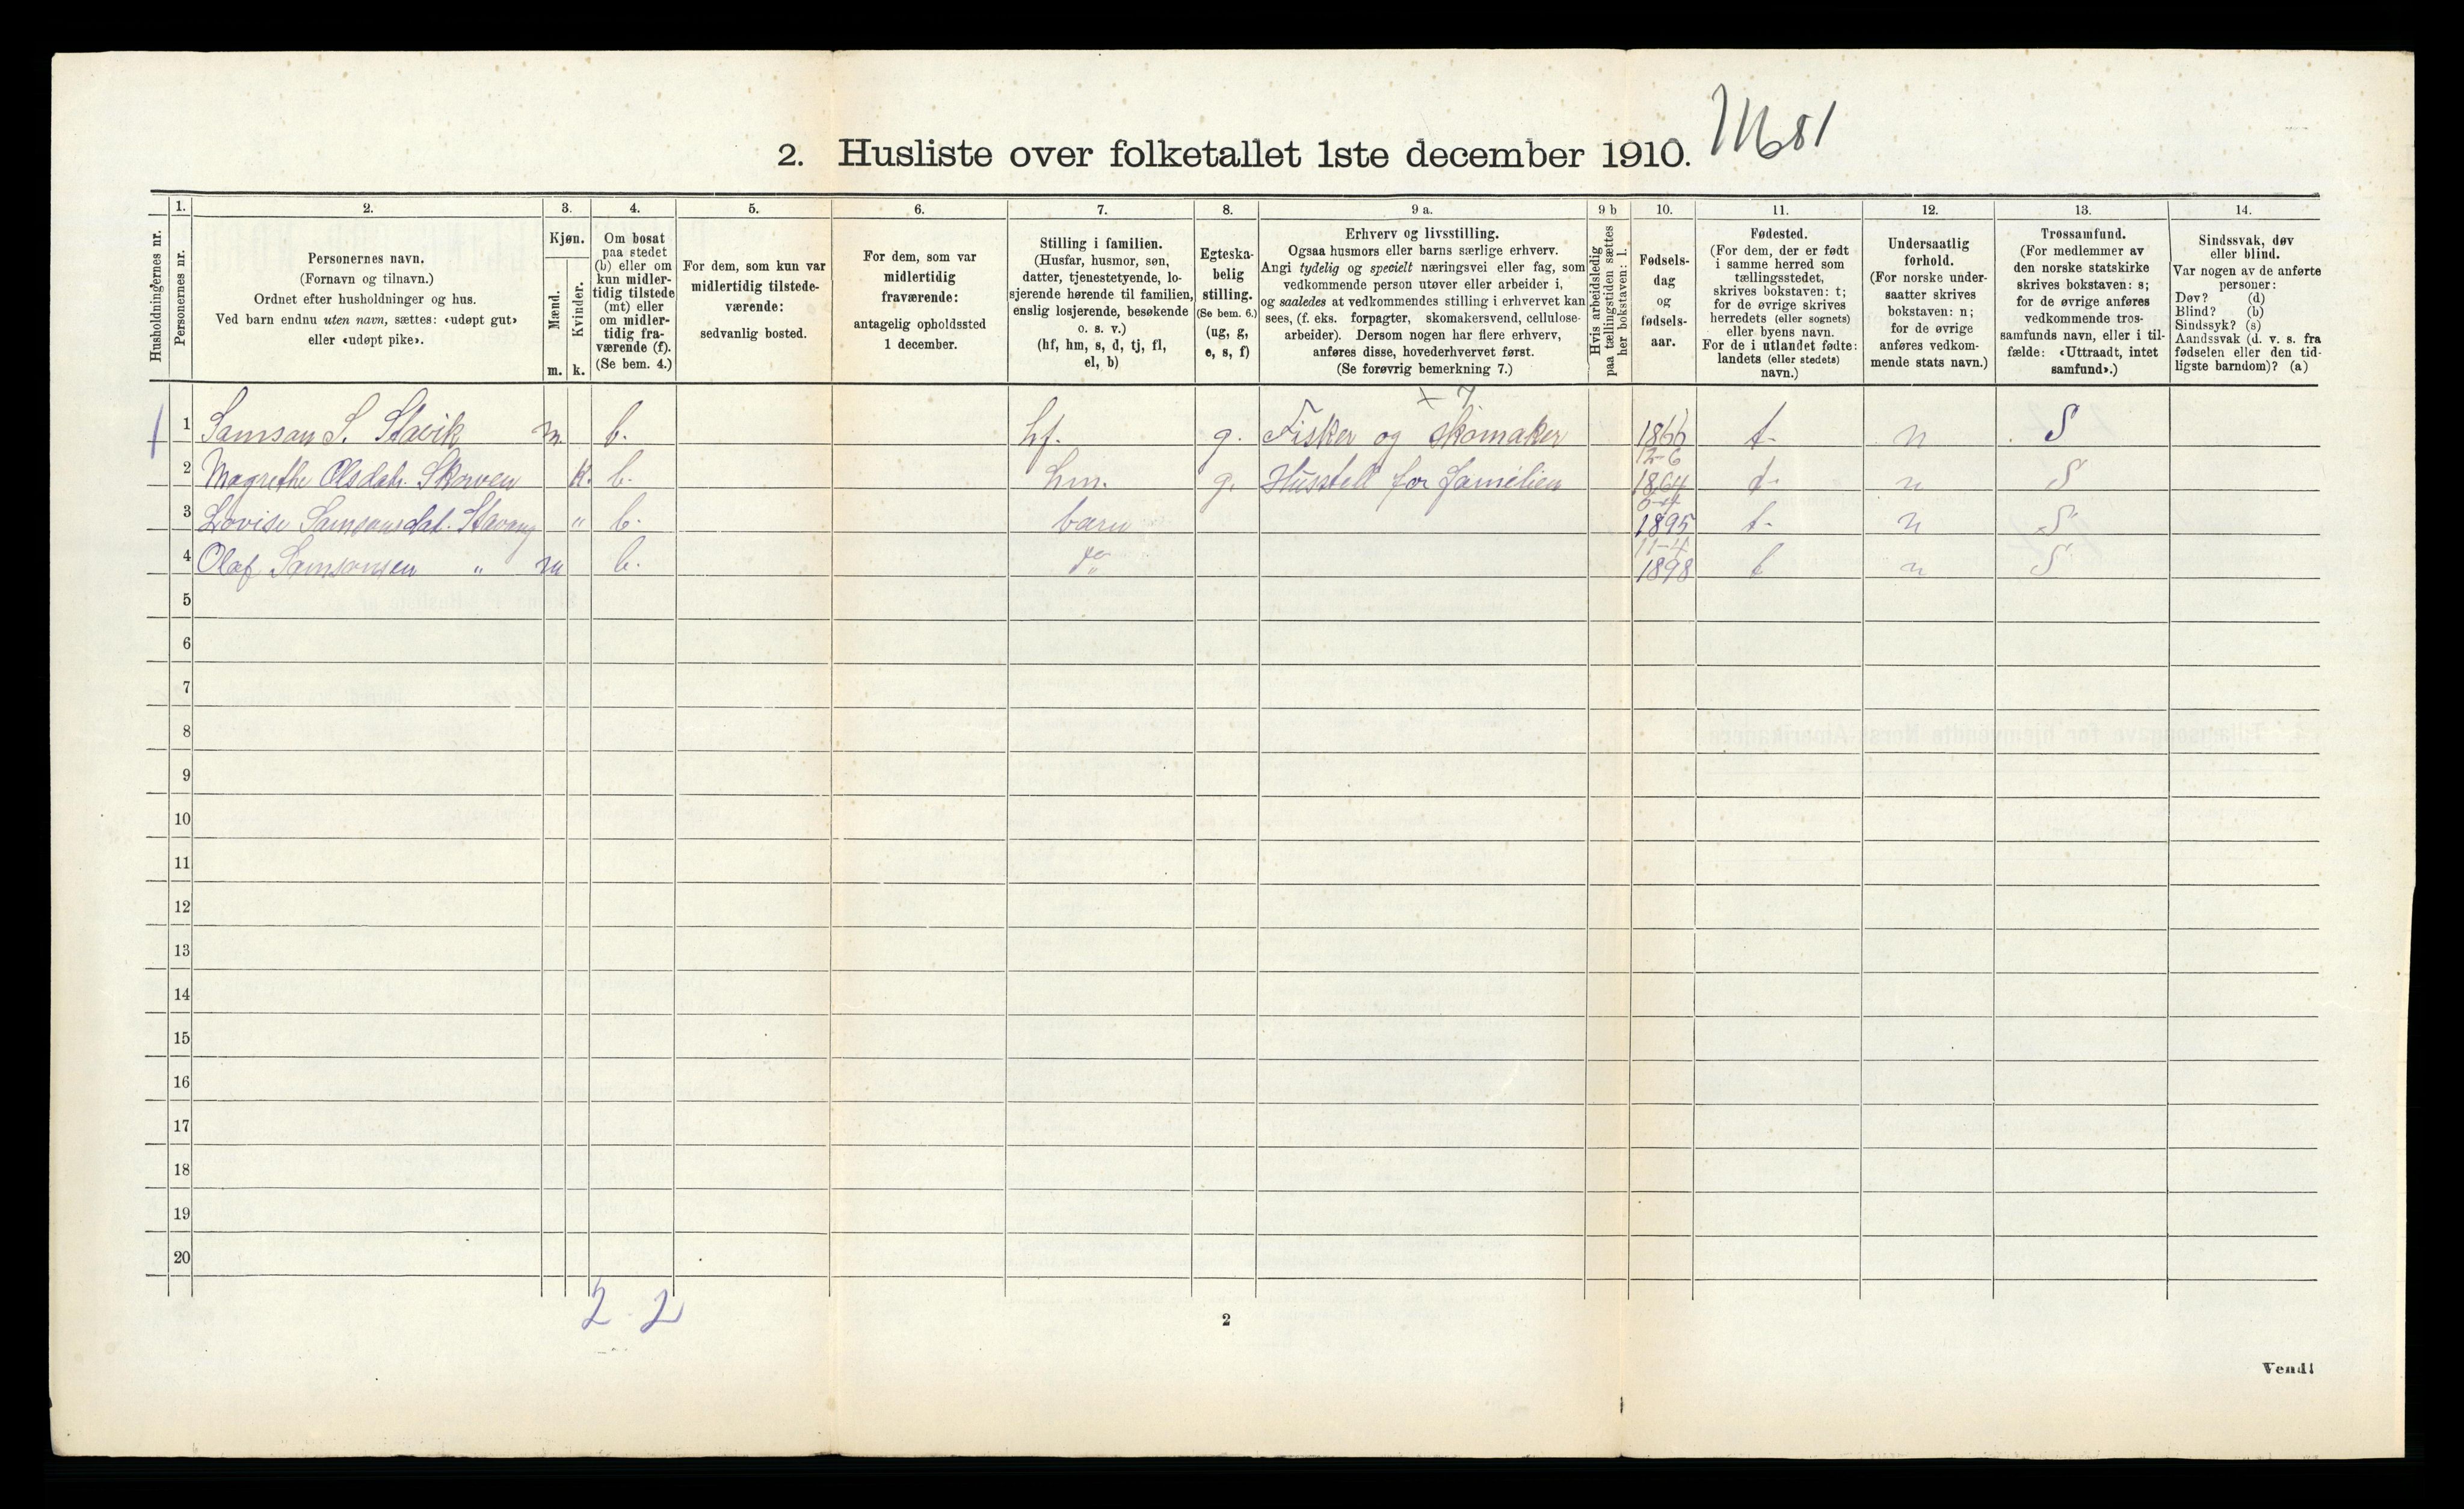 2. Husliste over folketallet 1ste december 1910.
1. 2. 3. 4. 5. 6. 7. 8. 9 a. 9 b 10. 11. 12. 13. 14.
Husholdningernes nr.
Personernes nr.
Personernes navn.
(Fornavn og tilnavn.)
Ordnet efter husholdninger og hus.
Ved barn endnu uten navn, sættes: «udøpt gut»
eller «udøpt pike».
Kjøn.
Mænd.
Kvinder.
m. k.
Om bosat
paa stedet
(b) eller om
kun midler-
tidig tilstede
(mt) eller
om midler-
tidig fra-
værende (f).
(Se bem. 4.)
For dem, som kun var
midlertidig tilstede-
værende:
sedvanlig bosted.
For dem, som var
midlertidig
fraværende:
antagelig opholdssted
1 december.
Stilling i familien.
(Husfar, husmor, søn,
datter, tjenestetyende, lo-
sjerende hørende til familien,
enslig losjerende, besøkende
o. s. v.)
(hf, hm, s, d, tj, fl,
el, b)
Egteska-
belig
stilling.
(Se bem. 6.)
(ug, g,
e, s, f)
Erhverv og livsstilling.
Ogsaa husmors eller barns særlige erhverv.
Angi tydelig og specielt næringsvei eller fag, som
vedkommende person utøver eller arbeider i,
og saaledes at vedkommendes stilling i erhvervet kan
sees, (f. eks. forpagter, skomakersvend, cellulose-
arbeider). Dersom nogen har flere erhverv,
anføres disse, hovederhvervet først.
(Se forøvrig bemerkning 7.)
Hvis arbeidsledig
paa tællingstiden sættes
her bokstaven: l.
Fødsels-
dag
og
fødsels-
aar.
Fødested.
(For dem, der er født
i samme herred som
tællingsstedet,
skrives bokstaven: t;
for de øvrige skrives
herredets (eller sognets)
eller byens navn.
For de i utlandet fødte:
landets (eller stedets)
navn.)
Undersaatlig
forhold.
(For norske under-
saatter skrives
bokstaven: n;
for de øvrige
anføres vedkom-
mende stats navn.)
Trossamfund.
(For medlemmer av
den norske statskirke
skrives bokstaven: s;
for de øvrige anføres
vedkommende tros-
samfunds navn, eller i til-
fælde: «Uttraadt, intet
samfund».)
Sindssvak, døv
eller blind.
Var nogen av de anførte
personer:
Døv? (d)
Blind? (b)
Sindssyk? (s)
Aandssvak (d. v. s. fra
fødselen eller den tid-
ligste barndom)? (a)
1 Samson S. Stavik m. b. hf. g. Fisker og skomaker 1866 t. n S
2 Magrethe Olsdatr. Skorven k. b. hm. g. Husstell for familien 12-6 1864 t. n S
3 Lovise Samsonsdat. Stavang " b. barn 1895 t. n S
4 Olaf Samsonsen " m b. do 11-4 1898 t n S
5
6
7
8
9
10
11
12
13
14
15
16
17
18
19
20
2 2
2
Vend!